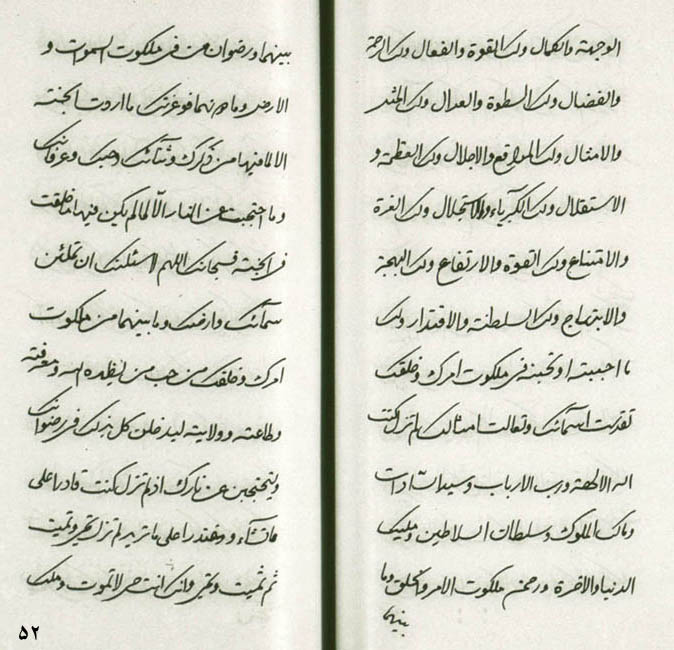 الوجهة والكمال ولك القوة والفعال ولك الرحمة
والفضال ولك السطوة والعدال ولك المثل
والامثال ولك المواقع والاجلال ولك العظمة و
الاستقلال ولك الكبرياء والاستجلال ولك العزة
والامتناع ولك القوة والارتفاع ولك البهجة
والابتهاج ولك السلطنة والاقتدار ولك
ما احببته او تحبنه فى ملكوت امرك وخلقك
تقدست اسمائك وتعالت امثالك لم تزل كنت
اله الالهة ورب الارباب وسيد السادات
وملك الملوك وسلطان السلاطين ومليك
الدنيا والاخرة ورحمن ملكوت الامر والخلق وما
بينهما
بينهما ورضوان من فى ملكوت السموات و
الارض وما دونهما فوعزتك ما اردت الجنة
الا لما فيها من ذكرك وثنائك وحبك وعرفانك
وما احتجبت عن النار الا لما لم يكن فيها ما خلقت
فى الجنة فسبحانك اللهم لاسئلنك ان تملئن
سمائك وارضك وما بينهما من ملكوت
امرك وخلقك من حب من يظهره الله ومعرفته
وطاعته وولايته ليدخلن كل بذلك فى رضوانك
وليحتجبن عن نارك اذ لم تزل كنت قادرا على
ما تشاء ومقتدرا على ما تريد لم تزل تحيى وتميت
ثم تميت وتحيى وانك انت حى لا تموت وملك
٥٢